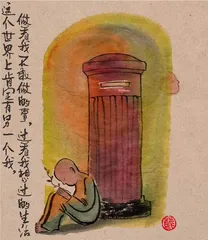 这个世界上肯定有另一个我，
做着我不敢做的事，过着我想过的生活